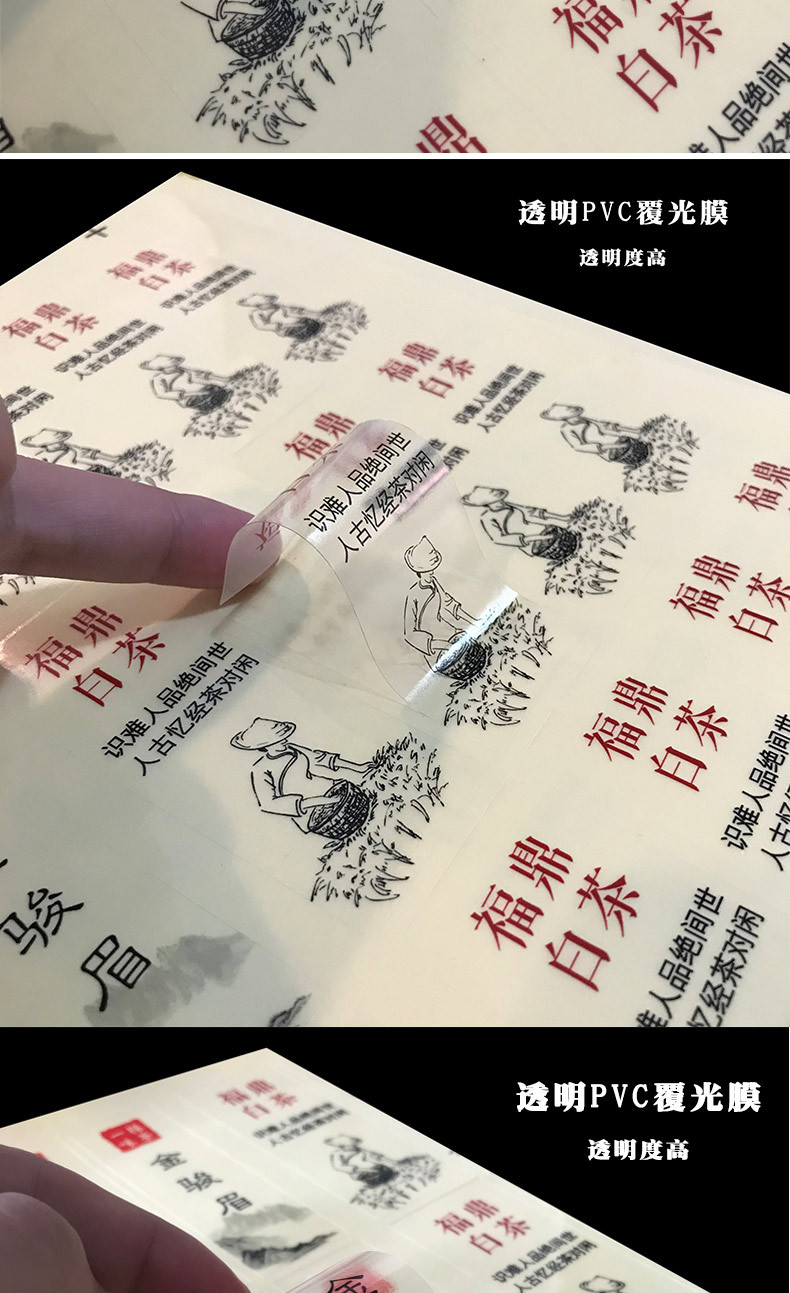 福
白茶
鼎
人品绝间世
透明PVC覆光膜
透明度高
福鼎
白茶
识难人品绝间世
人古忆经茶对闲
福鼎
白茶
识难人品绝间世
人古忆经茶对闲
福鼎
白茶
识难人品绝间世
人古忆经茶对闲
福鼎
识难人品绝间世
人古忆经茶对闲
福鼎
福鼎
白茶
福鼎
白茶
识难人品绝间世
人古忆经茶对闲
福鼎
白茶
识难人品绝间世
福鼎
白茶
难人品绝间世
忆经茶对闲
骏
眉
透明PVC覆光膜
透明度高
福鼎
白茶
识难人品绝间世
人古忆经茶对闲
金
骏
眉
福鼎
白茶
识难人品绝间世
人古忆经茶对闲
金